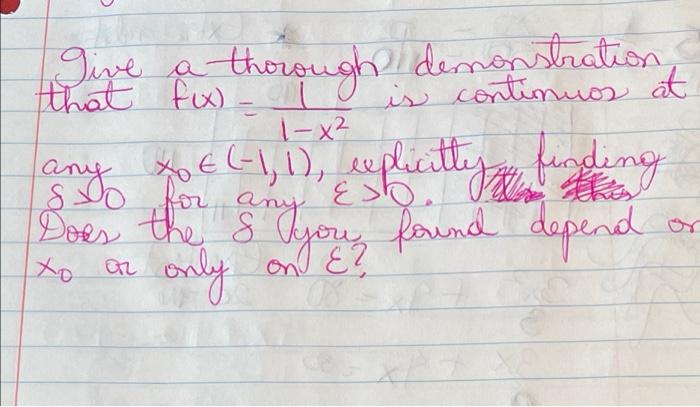 Give a thorough demonstration
that f(x) = 1/(1-x²) is continuos at
any x₀ ∈ (-1,1), explicitly finding
δ>0 for any ε>0.
Does the δ you found depend on
x₀ or only on ε?